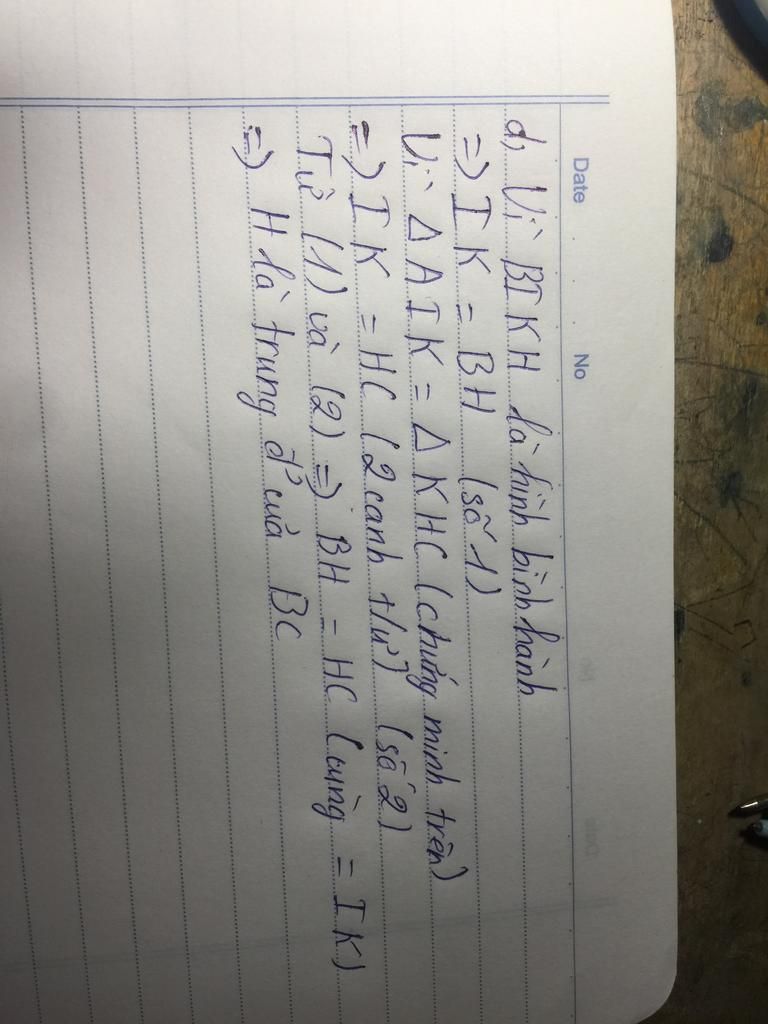 Date No
d, Vì BIKH là hình bình hành
=) IK = BH (số 1)
Vì Δ AIK = Δ KHC (chứng minh trên)
=) IK = HC (2 cạnh t/ư) (số 2)
Từ (1) và (2) =) BH = HC (cùng = IK)
=) H là trung đ' của BC